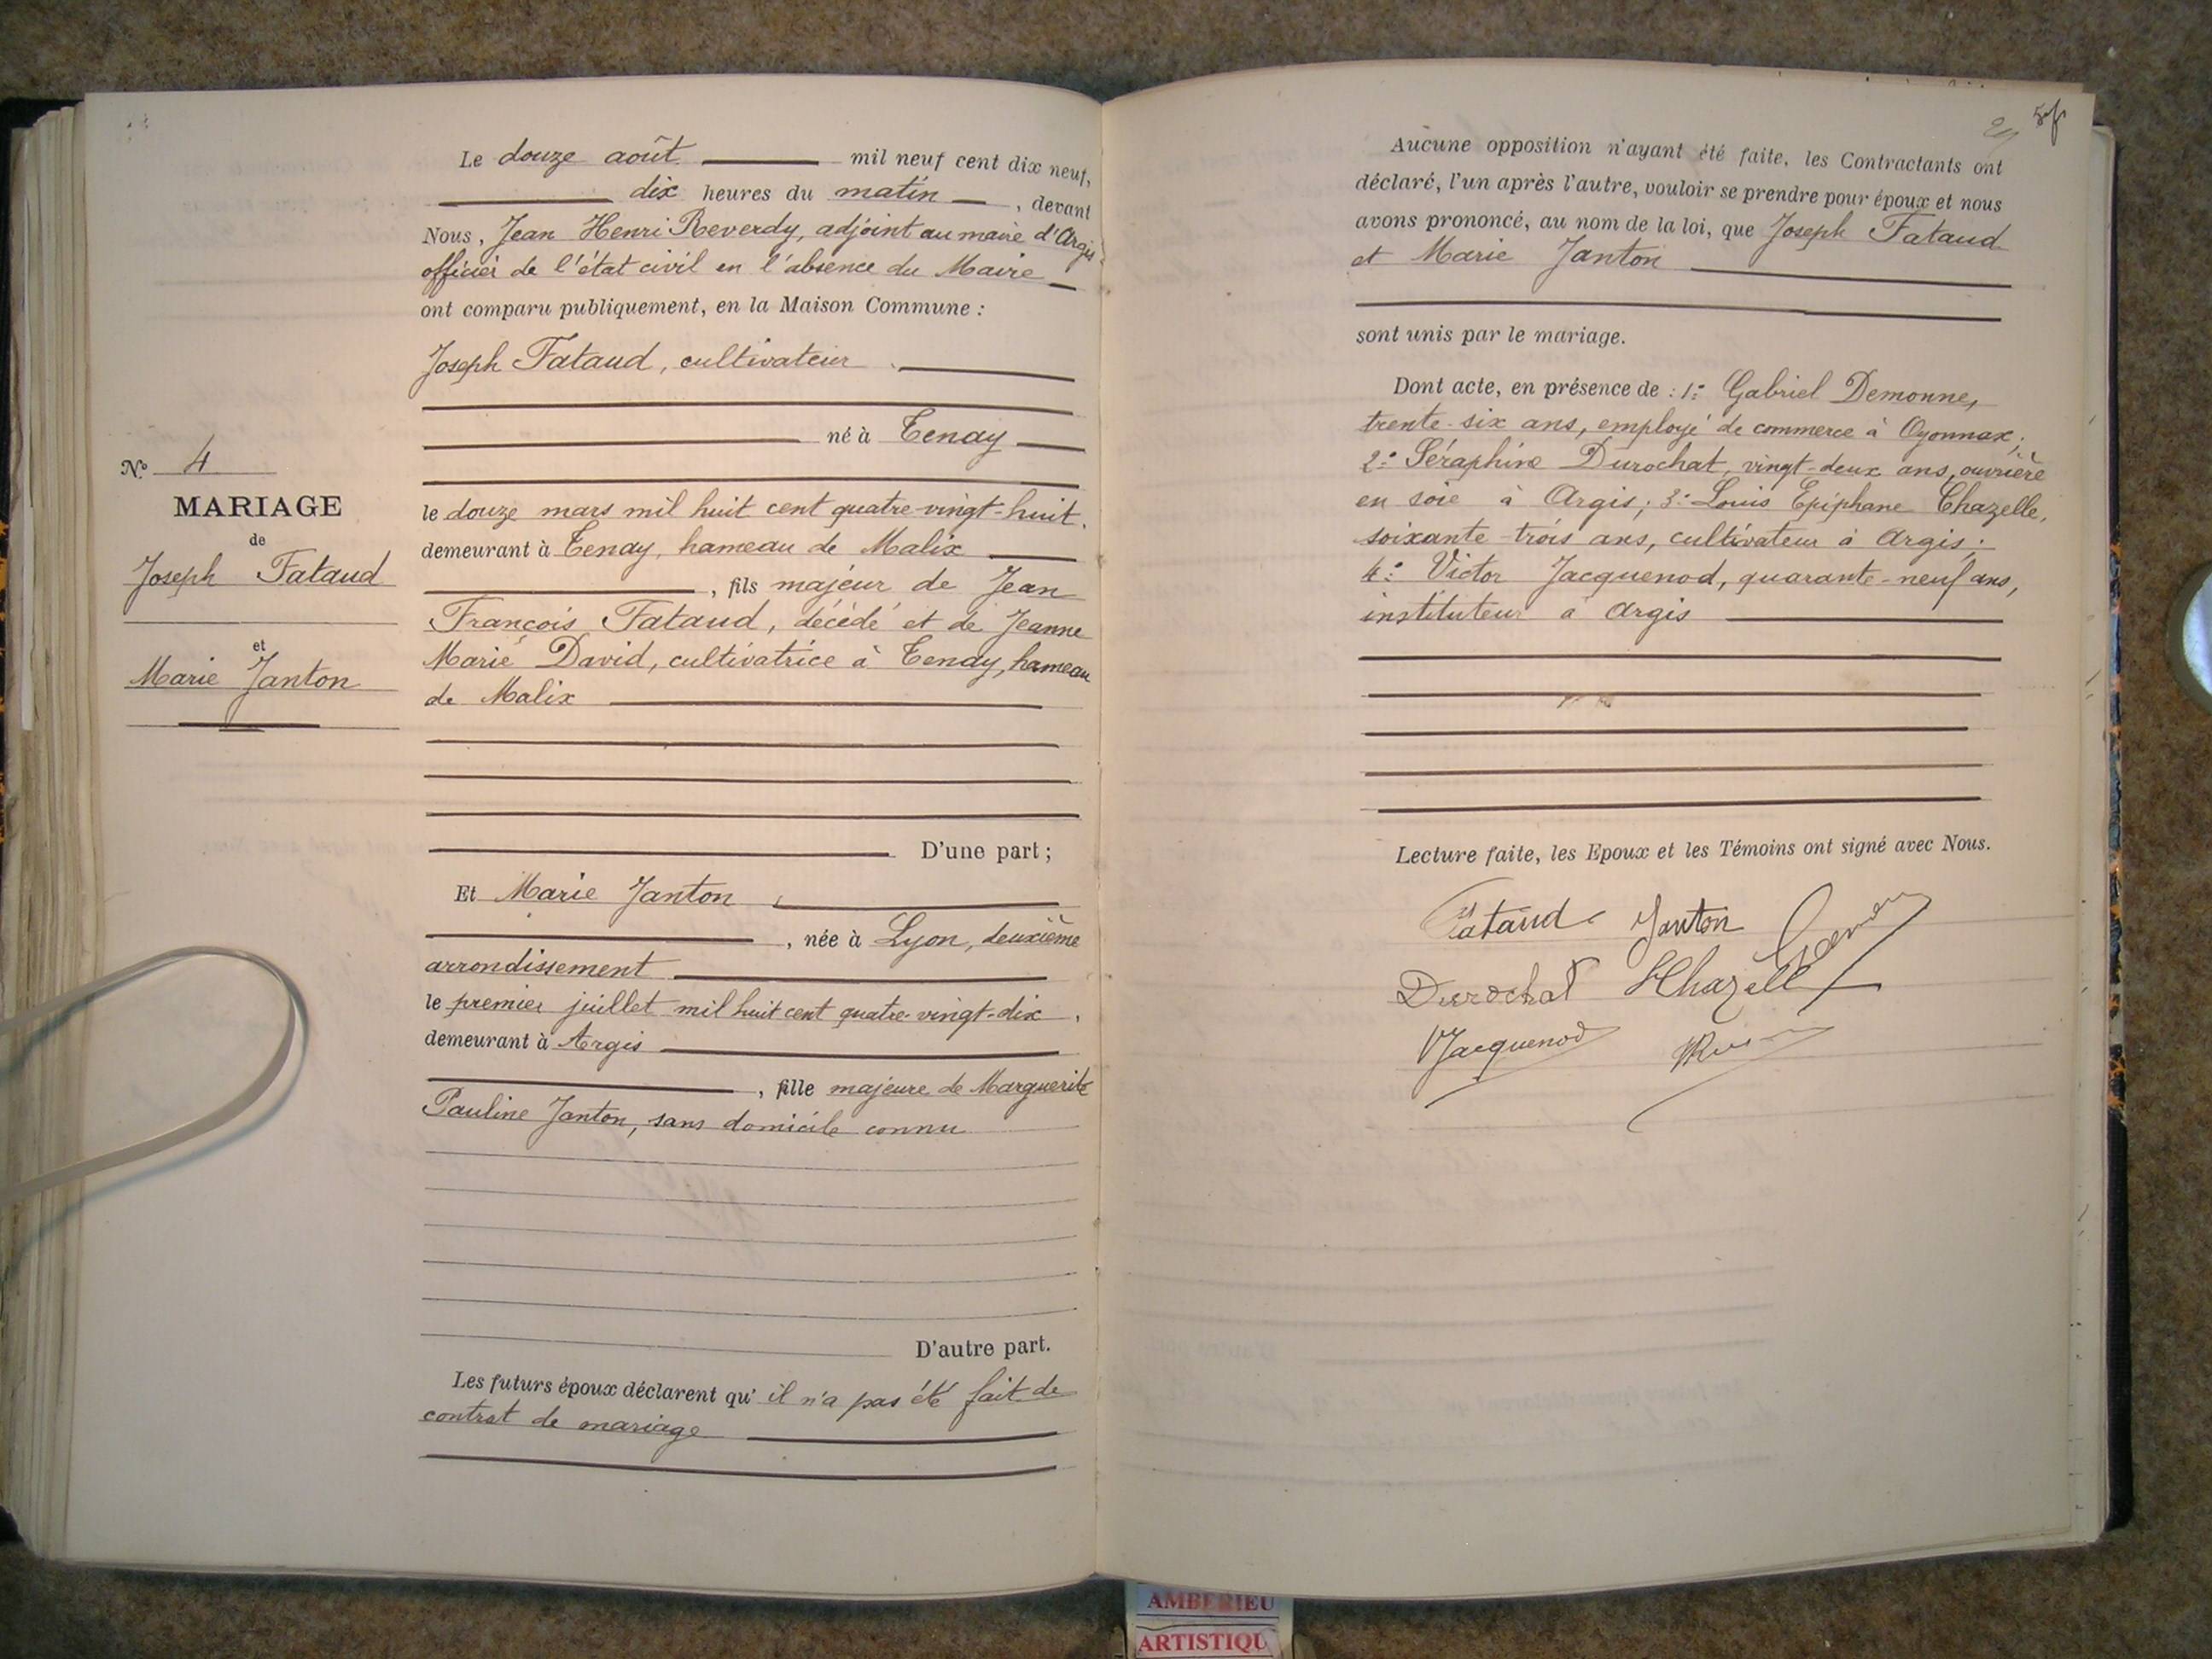 Le douze août mil neuf cent dix neuf,
dix heures du matin, devant
Nous, Jean Henri Reverdy, adjoint au maire d'Argis
officier de l'état civil en l'absence du Maire
ont comparu publiquement, en la Maison Commune :
Joseph Fataud, cultivateur
né à Tenay
le douze mars mil huit cent quatre-vingt-huit.
demeurant à Tenay, hameau de Malix
, fils majeur de Jean
François Fataud, décédé et de Jeanne
Marie David, cultivatrice à Tenay, hameau
de Malix
D'une part ;
Et Marie Janton,
, née à Lyon, deuxième
arrondissement
le premier juillet mil huit cent quatre-vingt-dix,
demeurant à Argis
, fille majeure de Marguerite
Pauline Janton, sans domicile connu
D'autre part.
Les futurs époux déclarent qu' il n'a pas été fait de
contrat de mariage
N° 4
MARIAGE
de
Joseph Fataud
et
Marie Janton
Aucune opposition n'ayant été faite, les Contractants ont
déclaré, l'un après l'autre, vouloir se prendre pour époux et nous
avons prononcé, au nom de la loi, que Joseph Fataud
et Marie Janton
sont unis par le mariage.
Dont acte, en présence de : 1° Gabriel Demonne,
trente-six ans, employé de commerce à Oyonnax;
2° Séraphine Durochat, vingt-deux ans, ouvrière
en soie à Argis; 3° Louis Epiphane Chazelle,
soixante-trois ans, cultivateur à Argis;
4° Victor Jacquenod, quarante-neuf ans,
instituteur à Argis
Lecture faite, les Epoux et les Témoins ont signé avec Nous.
Fataud Janton
Durochat Chazelle
VJacquenod
AMBERIEU
ARTISTIQU